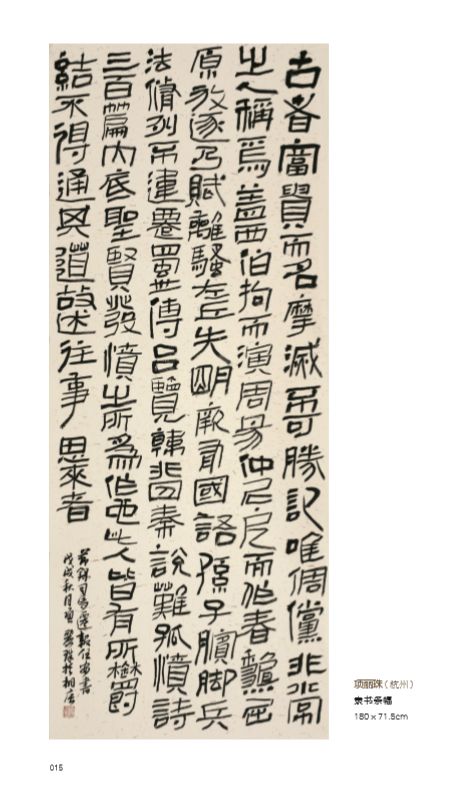 古者富貴而名摩滅不可勝記唯倜儻非常
之人稱焉盖西伯拘而演周易仲尼戹而作春秋屈
原放逐乃賦離騷左丘失明厥有國語孫子臏脚兵
法脩列不韋遷蜀世傳呂覽韓非囚秦說難孤憤詩
三百篇大底聖賢發憤之所為作也此人皆有所鬱
結不得通其道故述往事思來者
節錄司馬遷報任安書
戊戌秋月 麗珠於桐居
项丽珠（杭州）
隶书条幅
180 x 71.5cm
015